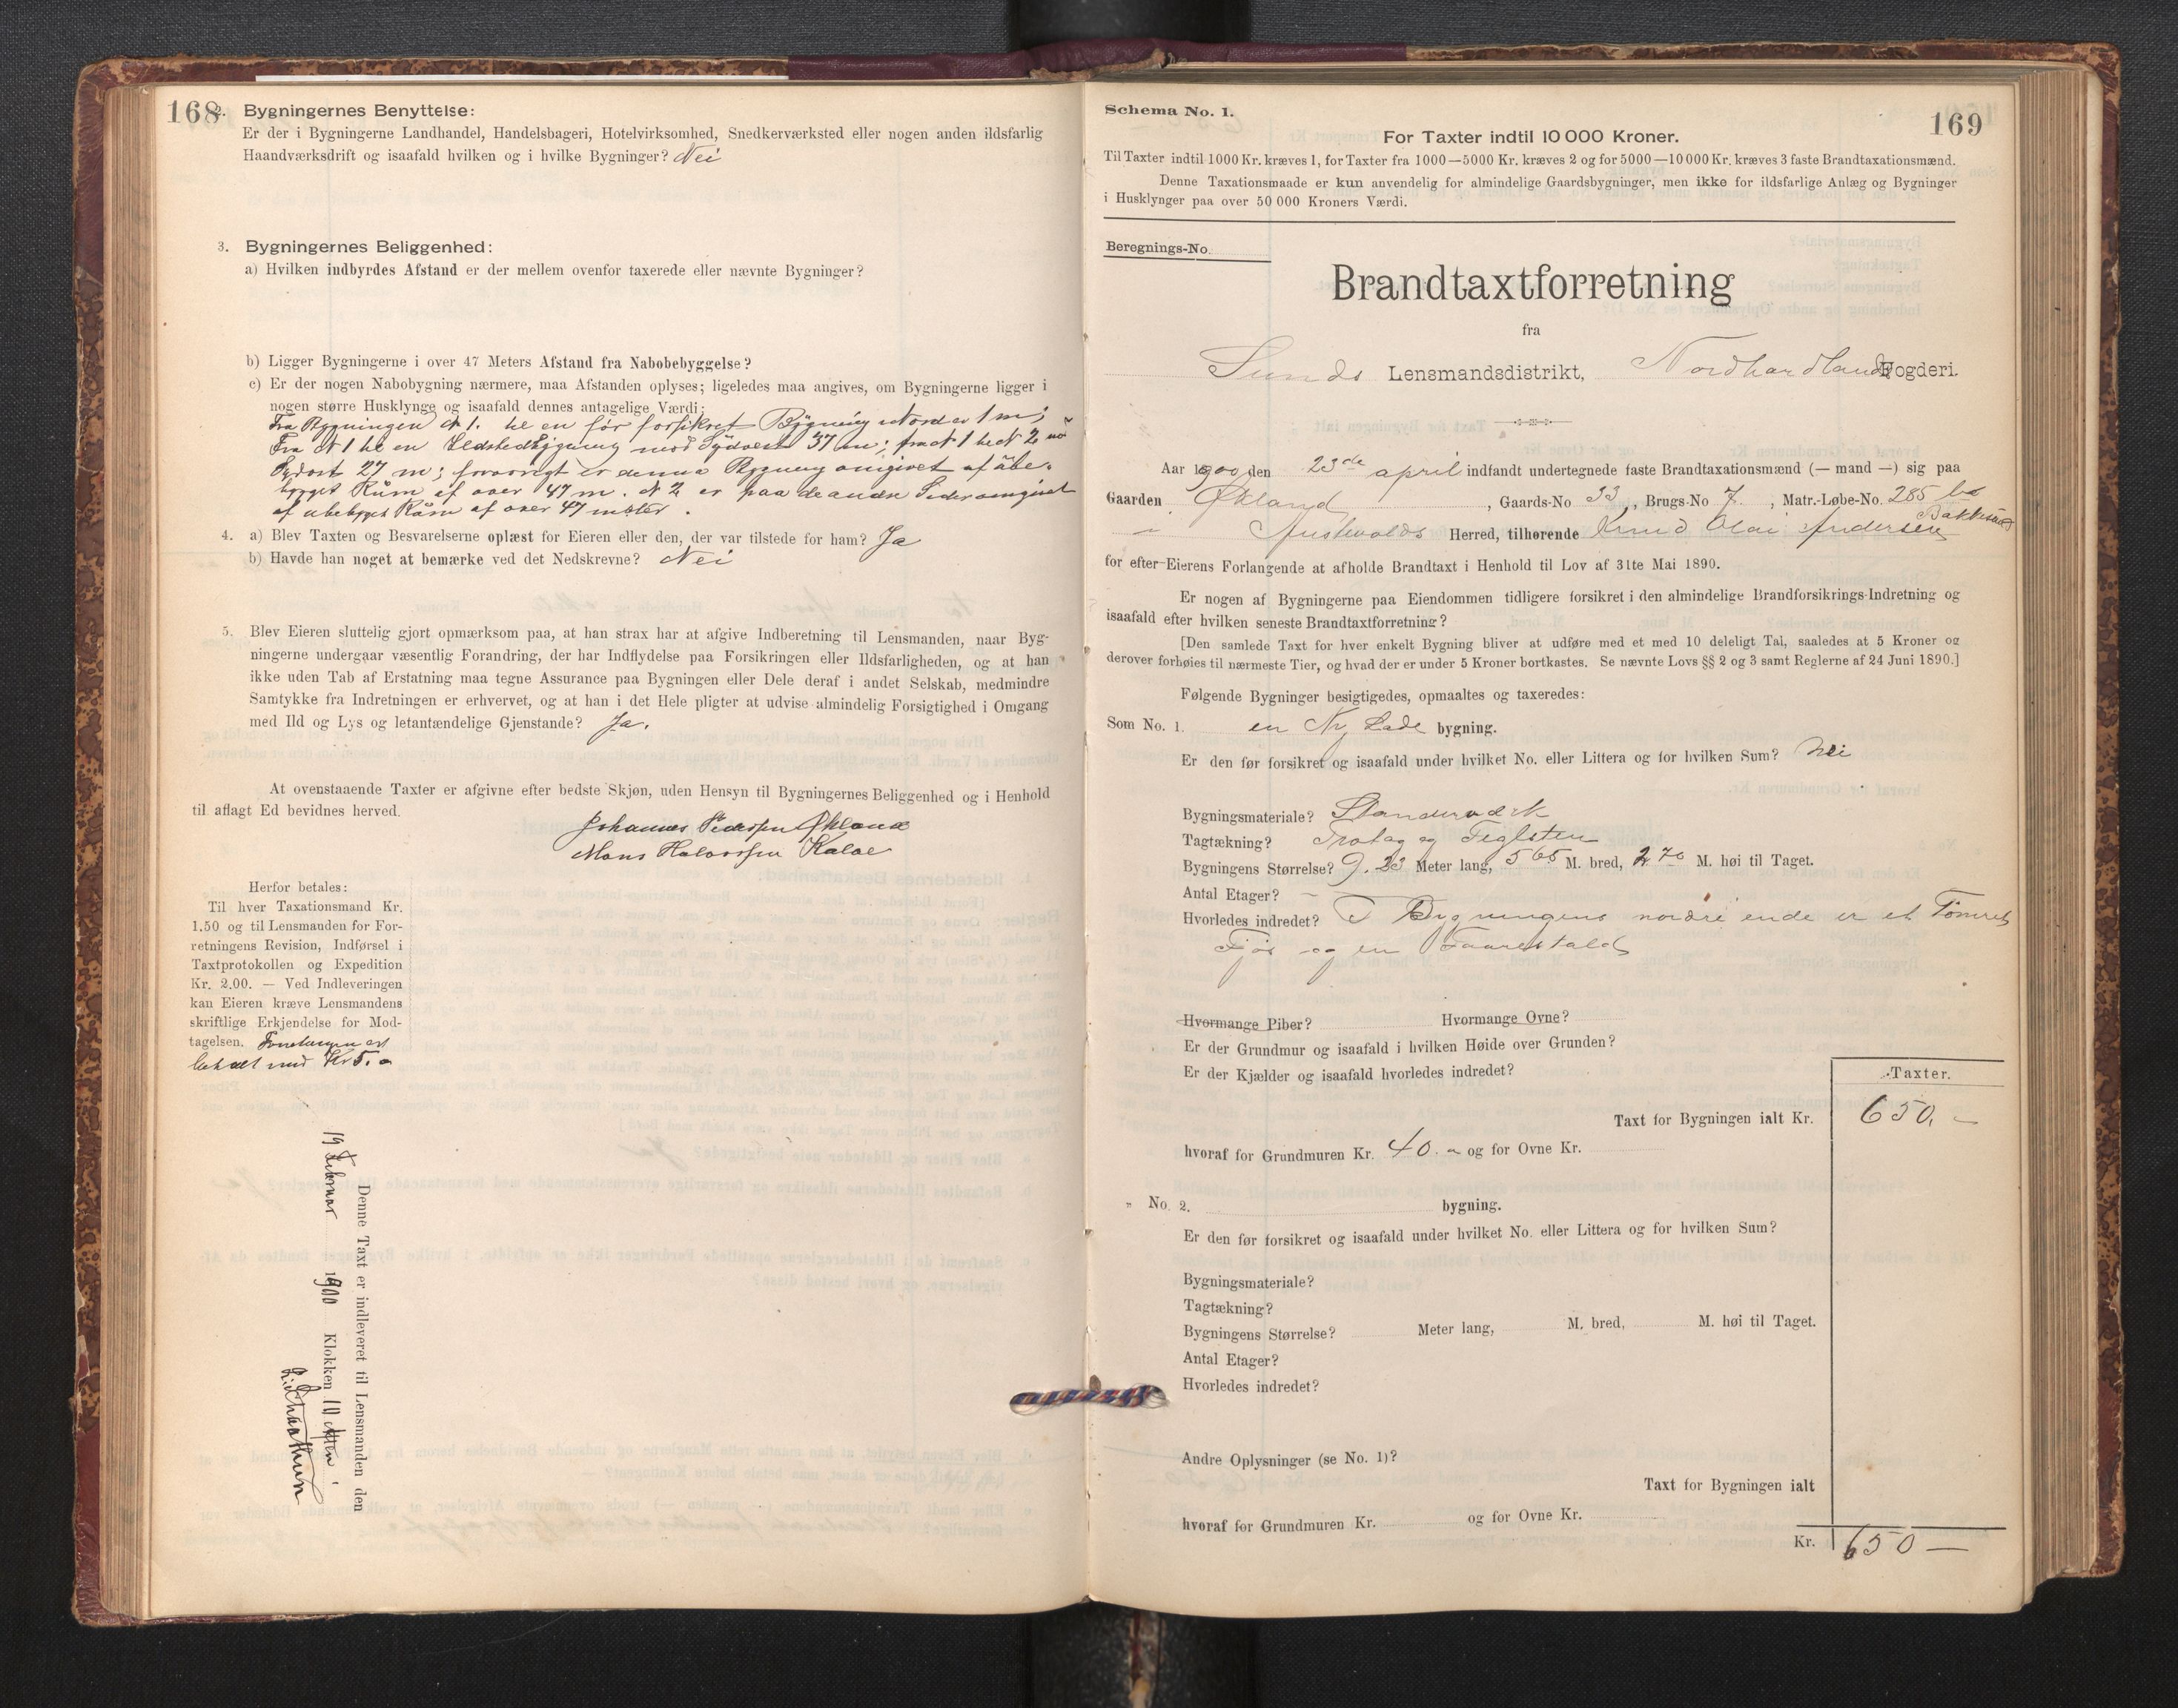 168
2. Bygningernes Benyttelse:
Er der i Bygningerne Landhandel, Handelsbageri, Hotelvirksomhed, Snedkerværksted eller nogen anden ildsfarlig
Haandværksdrift og isaafald hvilken og i hvilke Bygninger? Nei
3. Bygningernes Beliggenhed:
a) Hvilken indbyrdes Afstand er der mellem ovenfor taxerede eller nævnte Bygninger?
b) Ligger Bygningerne i over 47 Meters Afstand fra Nabobebyggelse?
c) Er der nogen Nabobygning nærmere, maa Afstanden oplyses; ligeledes maa angives, om Bygningerne ligger i
nogen større Husklynge og isaafald dennes antagelige Værdi:
Fra Bygningen N 1. til en før forsikret Bygning i Nord er 1 m;
Fra N 1 til en Ildstedbygning mod Sydvest 37 m; fra N 1 til N 2 mod
Sydost 27 m; forøvrigt er denne Bygning omgivet af übe-
bygget Rüm af over 47 m. N 2 er paa de andre Sider omgivet
af ubebygget Rüm af over 47 meter.
4. a) Blev Taxten og Besvarelserne oplæst for Eieren eller den, der var tilstede for ham? Ja
b) Havde han noget at bemærke ved det Nedskrevne? Nei
5. Blev Eieren sluttelig gjort opmærksom paa, at han strax har at afgive Indberetning til Lensmanden, naar Byg-
ningerne undergaar væsentlig Forandring, der har Indflydelse paa Forsikringen eller Ildsfarligheden, og at han
ikke uden Tab af Erstatning maa tegne Assurance paa Bygningen eller Dele deraf i andet Selskab, medmindre
Samtykke fra Indretningen er erhvervet, og at han i det Hele pligter at udvise almindelig Forsigtighed i Omgang
med Ild og Lys og letantændelige Gjenstande? Ja.
At ovenstaaende Taxter er afgivne efter bedste Skjøn, uden Hensyn til Bygningernes Beliggenhed og i Henhold
til aflagt Ed bevidnes herved.
Johannes Pederssen Økland
Mons Halvorssen Kalve
Herfor betales:
Til hver Taxationsmand Kr.
1.50 og til Lensmanden for For-
retningens Revision, Indførsel i
Taxtprotokollen og Expedition
Kr. 2.00. — Ved Indleveringen
kan Eieren kræve Lensmandens
skriftlige Erkjendelse for Mod-
tagelsen. Forretningen er
betalt med Kr 5.
Denne Taxt er indleveret til Lensmanden den
19 Februar 1900 Klokken 10 Aften
Schema No. 1.
169
For Taxter indtil 10 000 Kroner.
Til Taxter indtil 1000 Kr. kræves 1, for Taxter fra 1000—5000 Kr. kræves 2 og for 5000—10 000 Kr. kræves 3 faste Brandtaxationsmænd.
Denne Taxationsmaade er kun anvendelig for almindelige Gaardsbygninger, men ikke for ildsfarlige Anlæg og Bygninger
i Husklynger paa over 50 000 Kroners Værdi.
Beregnings-No.
Brandtaxtforretning
fra
Sunds Lensmandsdistrikt, Nordhordlands Fogderi.
Aar 1900 den 23de april indfandt undertegnede faste Brandtaxationsmænd (— mand —) sig paa
Gaarden Økland, Gaards-No 33, Brugs-No 7, Matr.-Løbe-No. 285 ba
Bakkesund
i Austevolds Herred, tilhørende Knud Olai Andersen
for efter Eierens Forlangende at afholde Brandtaxt i Henhold til Lov af 31te Mai 1890.
Er nogen af Bygningerne paa Eiendommen tidligere forsikret i den almindelige Brandforsikrings-Indretning og
isaafald efter hvilken seneste Brandtaxtforretning?
[Den samlede Taxt for hver enkelt Bygning bliver at udføre med et med 10 deleligt Tal, saaledes at 5 Kroner og
derover forhøies til nærmeste Tier, og hvad der er under 5 Kroner bortkastes. Se nævnte Lovs §§ 2 og 3 samt Reglerne af 24 Juni 1890.]
Følgende Bygninger besigtigedes, opmaaltes og taxeredes:
Som No. 1. en Ny Lade bygning.
Er den før forsikret og isaafald under hvilket No. eller Littera og for hvilken Sum? Nei
Bygningsmateriale? Standerverk
Tagtækning? Trotag og Teglsten
Bygningens Størrelse? 9.23 Meter lang, 5 65 M. bred, 2 70 M. høi til Taget.
Antal Etager? —
Hvorledes indredet? I Bygningens nordre ende er et Tømret
Fjøs og en Faarestald
Hvormange Piber? Hvormange Ovne?
Er der Grundmur og isaafald i hvilken Høide over Grunden?
Er der Kjælder og isaafald hvorledes indredet?
Taxter.
Taxt for Bygningen ialt Kr. 650. —
hvoraf for Grundmuren Kr. 40. — og for Ovne Kr.
" No. 2. bygning.
Er den før forsikret og isaafald under hvilket No. eller Littera og for hvilken Sum?
Bygningsmateriale?
Tagtækning?
Bygningens Størrelse? Meter lang, M. bred, M. høi til Taget.
Antal Etager?
Hvorledes indredet?
Andre Oplysninger (se No. 1)?
Taxt for Bygningen ialt
hvoraf for Grundmuren Kr. og for Ovne Kr.
Kr. 650 —